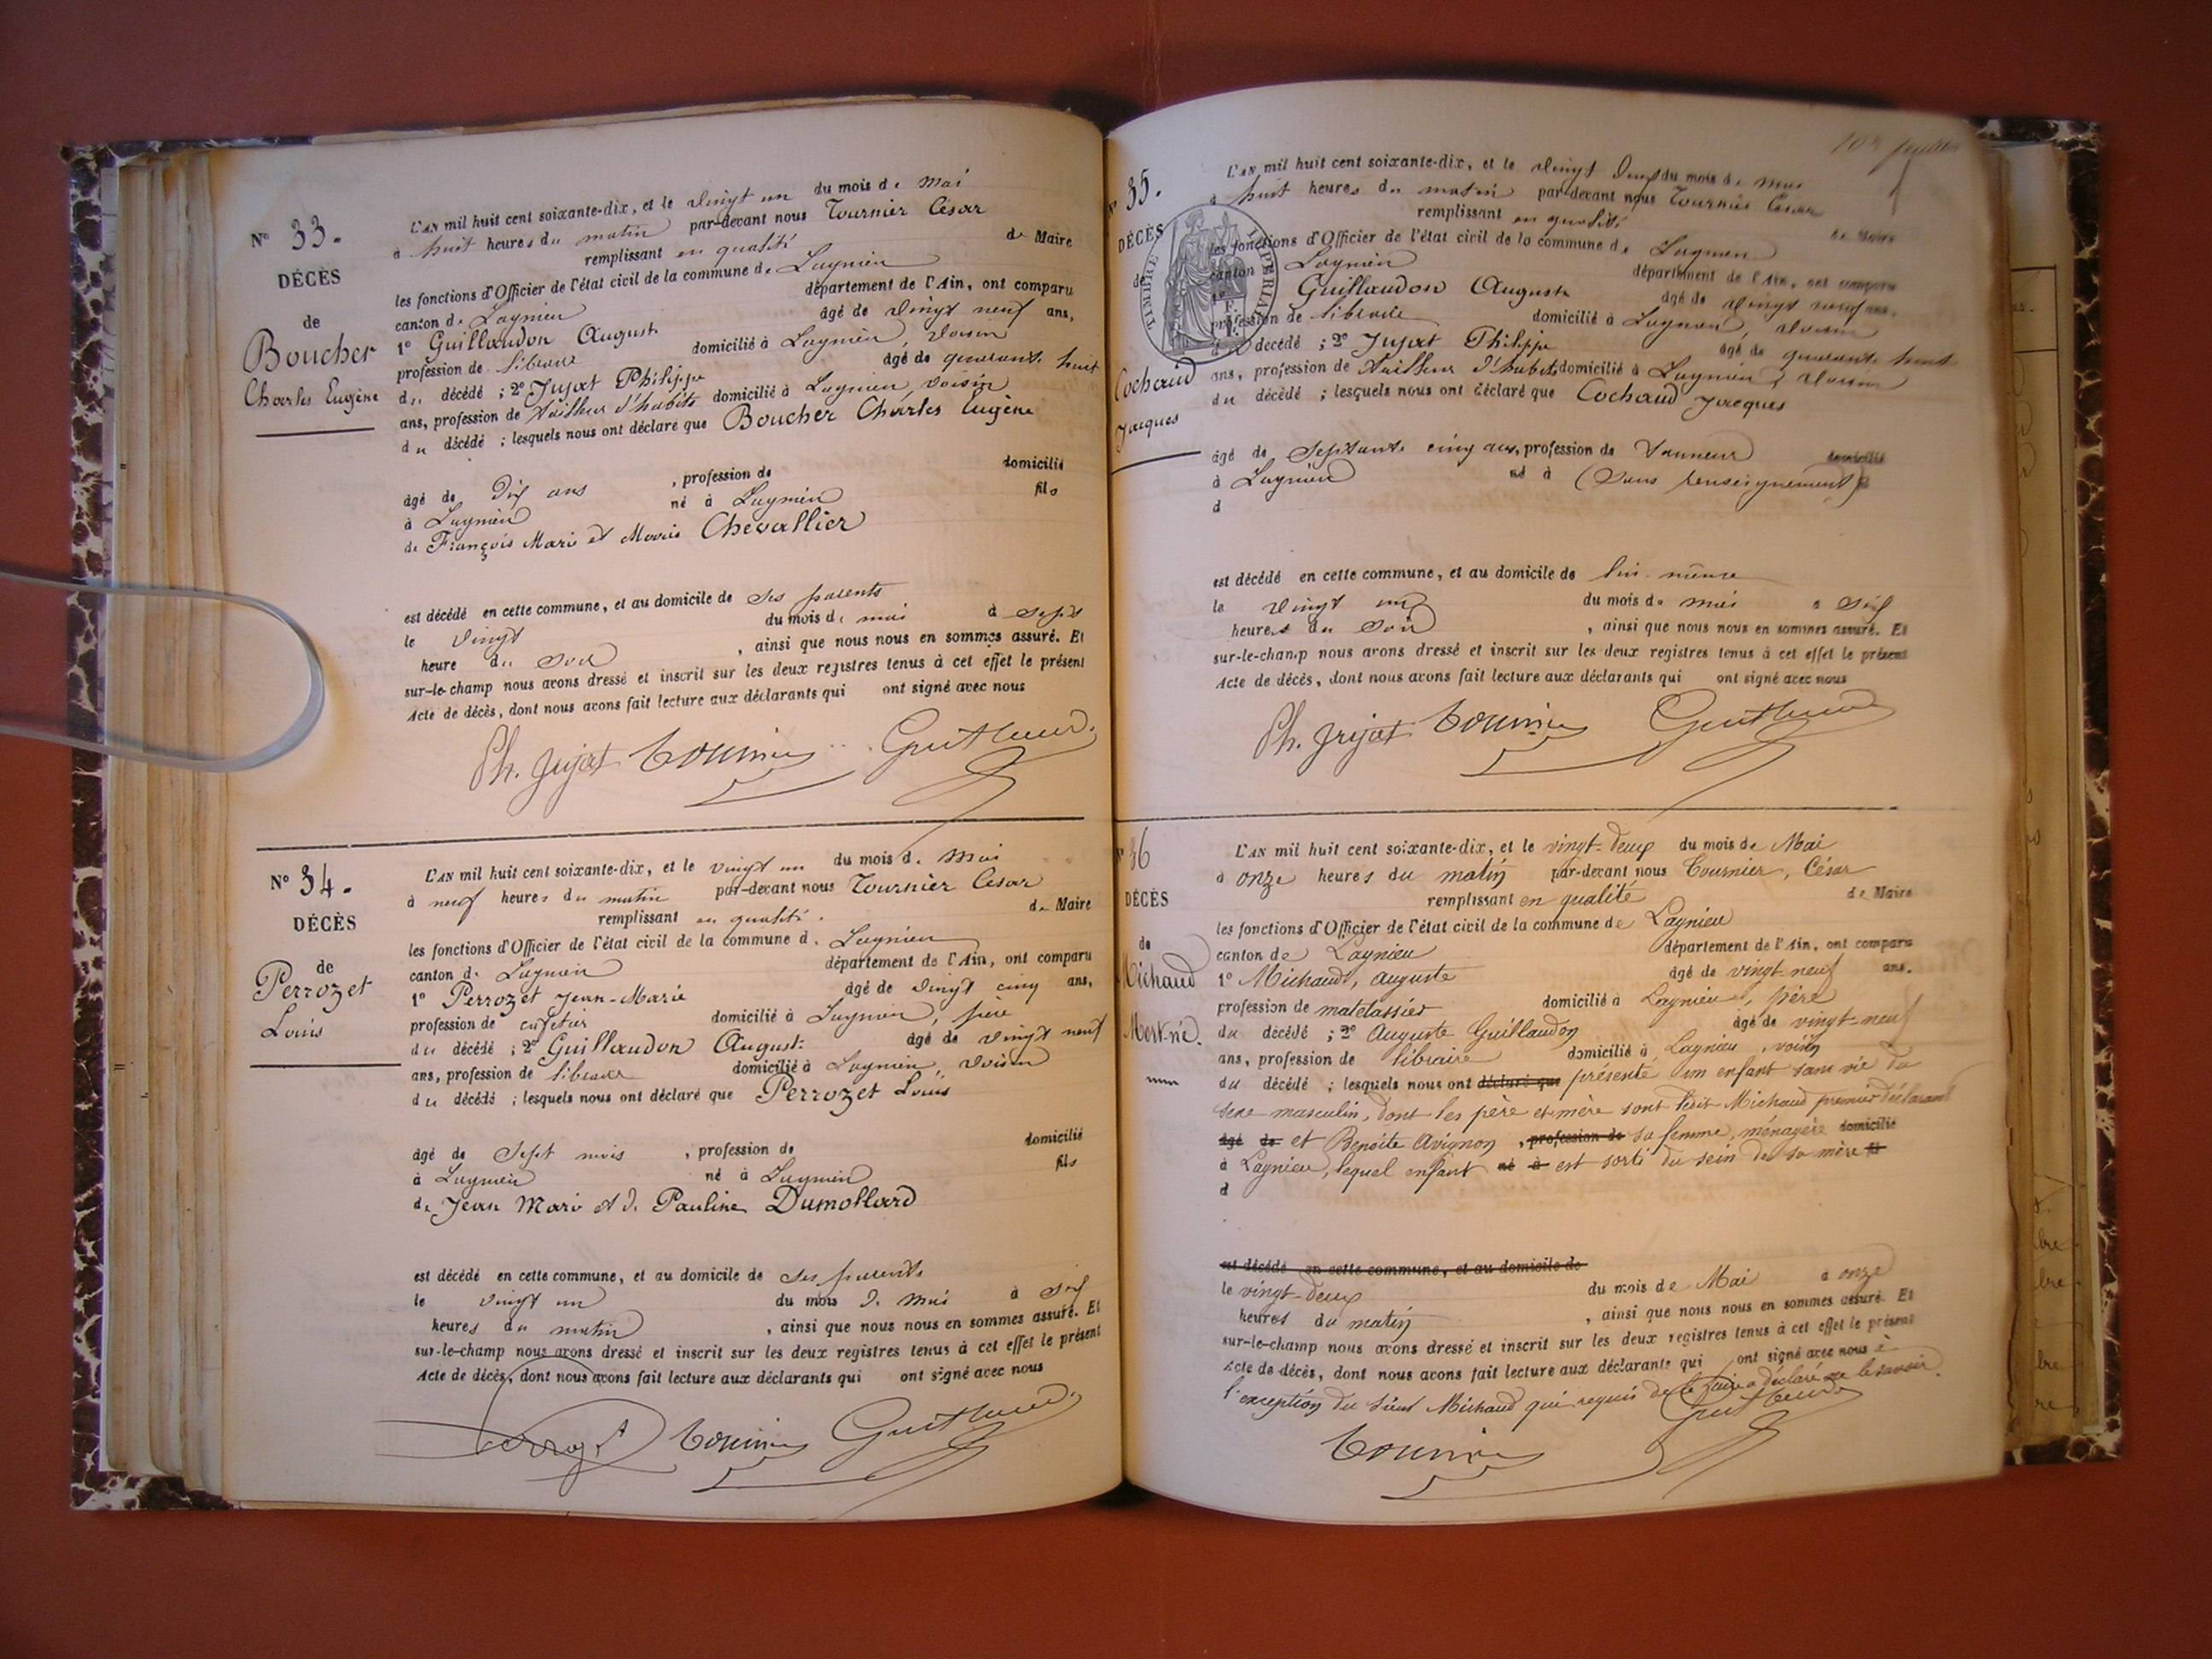 N° 33.
DÉCÈS
de
Boucher
Charles Eugène
L'AN mil huit cent soixante-dix, et le vingt un du mois de Mai
à huit heures du matin par-devant nous Tournier César
remplissant en qualité de Maire
les fonctions d'Officier de l'état civil de la commune de Lagnieu
canton de Lagnieu département de l'Ain, ont comparu
1° Guillaudon August. âgé de vingt neuf ans,
profession de libraire domicilié à Lagnieu, voisin
du décédé ; 2° Jujat Philippe âgé de quarante huit
ans, profession de tailleur d'habits domicilié à Lagnieu, voisin
du décédé ; lesquels nous ont déclaré que Boucher Charles Eugène
âgé de dix ans , profession de domicilié
à Lagnieu né à Lagnieu fils
de François Marie et Marie Chevallier
est décédé en cette commune, et au domicile de ses parents
le vingt du mois de mai à sept
heure du soir , ainsi que nous nous en sommes assuré. Et
sur-le-champ nous avons dressé et inscrit sur les deux registres tenus à cet effet le présent
Acte de décès, dont nous avons fait lecture aux déclarants qui ont signé avec nous
Ph. Jujat Tournier
N° 34.
DÉCÈS
de
Perrozet
Louis
L'AN mil huit cent soixante-dix, et le vingt un du mois de Mai
à neuf heures du matin par-devant nous Tournier César
remplissant en qualité. de Maire
les fonctions d'Officier de l'état civil de la commune de Lagnieu
canton de Lagnieu département de l'Ain, ont comparu
1° Perrozet Jean-Marie âgé de vingt cinq ans,
profession de cafetier domicilié à Lagnieu, père
du décédé ; 2° Guillaudon August. âgé de vingt neuf
ans, profession de libraire domicilié à Lagnieu, voisin
du décédé ; lesquels nous ont déclaré que Perrozet Louis
âgé de sept mois , profession de domicilié
à Lagnieu né à Lagnieu fils
de Jean Marie et de Pauline Dumollard
est décédé en cette commune, et au domicile de ses parents
le vingt un du mois de mai à six
heures du matin , ainsi que nous nous en sommes assuré. Et
sur-le-champ nous avons dressé et inscrit sur les deux registres tenus à cet effet le présent
Acte de décès, dont nous avons fait lecture aux déclarants qui ont signé avec nous
Tournier
35.
DÉCÈS
de
Cochaud
Jacques
TIMBRE IMPÉRIAL
L'AN mil huit cent soixante-dix, et le vingt deux du mois de mai
à huit heures du matin par-devant nous Tournier César
remplissant en qualité de Maire
les fonctions d'Officier de l'état civil de la commune de Lagnieu
canton Lagnieu département de l'Ain, ont comparu
Guillaudon Auguste âgé de vingt neuf ans,
profession de libraire domicilié à Lagnieu, voisin
decédé ; 2° Jujat Philippe âgé de quarante huit
ans, profession de tailleur d'habits domicilié à Lagnieu, voisin
du décédé ; lesquels nous ont déclaré que Cochaud Jacques
âgé de septante cinq ans, profession de domicilié
à Lagnieu né à (sans renseignement)
d
est décédé en cette commune, et au domicile de lui-même
le vingt un du mois de mai à six
heures du soir , ainsi que nous nous en sommes assuré. Et
sur-le-champ nous avons dressé et inscrit sur les deux registres tenus à cet effet le présent
Acte de décès, dont nous avons fait lecture aux déclarants qui ont signé avec nous
Ph. Jujat Tournier
36
DÉCÈS
de
Michaud
Mort-né.
L'AN mil huit cent soixante-dix, et le vingt-deux du mois de Mai
à onze heures du matin par-devant nous Tournier, César
remplissant en qualité de Maire
les fonctions d'Officier de l'état civil de la commune de Lagnieu
canton de Lagnieu département de l'Ain, ont comparu
1° Michaud, Auguste âgé de vingt-neuf ans.
profession de matelassier domicilié à Lagnieu, père
du décédé ; 2° Auguste Guillaudon âgé de vingt-neuf
ans, profession de libraire domicilié à Lagnieu, voisin
du décédé ; lesquels nous ont déclaré que présenté un enfant sans vie du
sexe masculin, dont les père et mère sont ledit Michaud premier déclarant
âgé de et Benoîte Avignon , profession de sa femme, ménagère domicilié
à Lagnieu, lequel enfant né à est sorti du sein de sa mère fil
d
est décédé en cette commune, et au domicile de
le vingt-deux du mois de Mai à onze
heures du matin , ainsi que nous nous en sommes assuré. Et
sur-le-champ nous avons dressé et inscrit sur les deux registres tenus à cet effet le présent
Acte de décès, dont nous avons fait lecture aux déclarants qui ont signé avec nous à
l'exception du sieur Michaud qui requis de le faire a déclaré ne le savoir.
Tournier